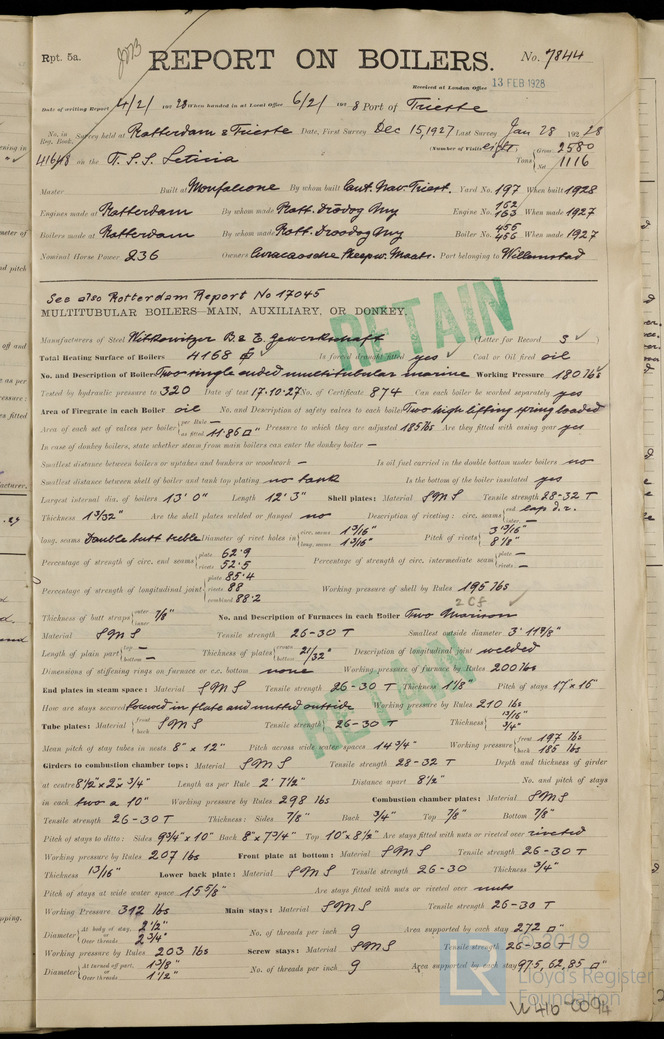 Rpt. 5a.
REPORT ON BOILERS.
No. 7844
Received at London Office 13 FEB 1928
Date of writing Report 4/2/ 1928 When handed in at Local Office 6/2/ 1928 Port of Trieste
No. in Reg. Book. Survey held at Rotterdam & Trieste Date, First Survey Dec 15, 1927 Last Survey Jan 28 1928
(Number of Visits eight
41648 on the T.S.S. Leticia Tons { Gross 2580 Net 1116
Master Built at Monfalcone By whom built Cant. Nav. Triest. Yard No. 197 When built 1928
Engines made at Rotterdam By whom made Rott. Drodog My Engine No. 162 163 When made 1927
Boilers made at Rotterdam By whom made Rott. Droogdog My Boiler No. 455 456 When made 1927
Nominal Horse Power 236 Owners Curacaosche Scheepv. Maats. Port belonging to Willemstad
See also Rotterdam Report No 17045
MULTITUBULAR BOILERS MAIN, AUXILIARY, OR DONKEY.
RETAIN
Manufacturers of Steel Witkowitzer B. & E. Gewerkschaft (Letter for Record S )
Total Heating Surface of Boilers 4168 Is forced draught used yes Coal or Oil fired oil
No. and Description of Boilers Two single ended multitubular marine Working Pressure 180 lbs
Tested by hydraulic pressure to 320 Date of test 17.10.27 No. of Certificate 874 Can each boiler be worked separately yes
Area of Firegrate in each Boiler oil No. and Description of safety valves to each boiler Two high lifting spring loaded
Area of each set of valves per boiler { per Rule – as fitted 11.86 □" Pressure to which they are adjusted 185 lbs Are they fitted with easing gear yes
In case of donkey boilers, state whether steam from main boilers can enter the donkey boiler –
Smallest distance between boilers or uptakes and bunkers or woodwork – Is oil fuel carried in the double bottom under boilers no
Smallest distance between shell of boiler and tank top plating no tank Is the bottom of the boiler insulated yes
Largest internal dia. of boilers 13' 0" Length 12' 3" Shell plates: Material SMS Tensile strength 28-32 T
Thickness 1 3/32" Are the shell plates welded or flanged no Description of riveting: circ. seams { end lap d.r. inter. –
long. seams Double butt treble Diameter of rivet holes in { circ. seams 1 3/16" long. seams 1 3/16" Pitch of rivets { 3 13/16" 8 1/8"
Percentage of strength of circ. end seams { plate 62.9 rivets 52.5 Percentage of strength of circ. intermediate seam { plate – rivets –
Percentage of strength of longitudinal joint { plate 85.4 rivets 88 combined 88.2 Working pressure of shell by Rules 195 lbs
2 Cf
Thickness of butt straps { outer inner 7/8" No. and Description of Furnaces in each Boiler Two Morison
Material SMS Tensile strength 26-30 T Smallest outside diameter 3' 11 3/8"
Length of plain part { top – bottom – Thickness of plates { crown bottom 21/32" Description of longitudinal joint welded
Dimensions of stiffening rings on furnace or c.c. bottom none Working pressure of furnace by Rules 200 lbs
RETAIN
End plates in steam space: Material SMS Tensile strength 26-30 T Thickness 1 1/8 Pitch of stays 17" x 16"
How are stays secured screwed in plate and nutted outside Working pressure by Rules 210 lbs
Tube plates: Material { front back SMS Tensile strength 26-30 T Thickness { 13/16" 3/4"
Mean pitch of stay tubes in nests 8" x 12" Pitch across wide water spaces 14 3/4" Working pressure { front 197 lbs back 185 lbs
Girders to combustion chamber tops: Material SMS Tensile strength 28-32 T Depth and thickness of girder
at centre 8 1/2" x 2" x 3/4" Length as per Rule 2' 7 1/2" Distance apart 8 1/2" No. and pitch of stays
in each two a 10" Working pressure by Rules 298 lbs Combustion chamber plates: Material SMS
Tensile strength 26-30 T Thickness: Sides 7/8" Back 3/4" Top 7/8" Bottom 7/8"
Pitch of stays to ditto: Sides 9 3/4" x 10" Back 8" x 7 3/4" Top 10" x 8 1/2" Are stays fitted with nuts or riveted over riveted
Working pressure by Rules 207 lbs Front plate at bottom: Material SMS Tensile strength 26-30 T
Thickness 13/16" Lower back plate: Material SMS Tensile strength 26-30 Thickness 3/4"
Pitch of stays at wide water space 15 5/8" Are stays fitted with nuts or riveted over nuts
Working Pressure 312 lbs Main stays: Material SMS Tensile strength 26-30 T
Diameter { At body of stay, 2 1/2" or Over threads 2 3/4" No. of threads per inch 9 Area supported by each stay 272 □"
Working pressure by Rules 203 lbs Screw stays: Material SMS Tensile strength 26-30 T
Diameter { At turned off part, 1 3/8" or Over threads 1 1/2" No. of threads per inch 9 Area supported by each stay 97.5, 62, 85 □"
© 2019
LR Lloyd's Register Foundation
W416-0094